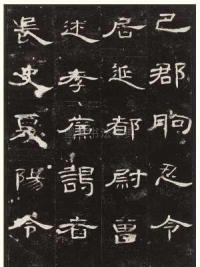 巴郡朐忍令
居延都尉曾
述孝廉謁者
長史夏陽令